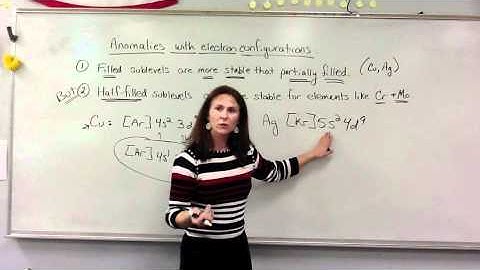 Anomalies with electron configurations
① Filled sublevels are more stable that partially filled. (Cu, Ag)
But ② Half-filled sublevels stable for elements like Cr + Mo
Cu: [Ar] 4s² 3d Ag [Kr] 5s² 4d⁹
[Ar] 4s¹